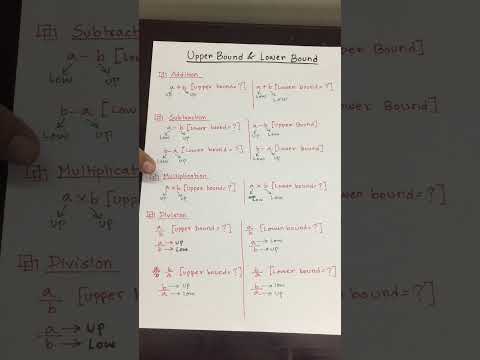 Upper Bound & Lower Bound
Addition
a + b [Upper bound = ?]
up up
a + b [Lower bound = ?]
Low Low
Subtraction
a - b [Lower bound = ?]
Low up
a - b [Upper Bound]
b - a [Lower bound = ?]
Low up
b - a [Lower Bound]
Low up
Multiplication
a x b [Upper bound = ?]
up up
a x b [Lower bound = ?]
Low Low
Division
a/b [Upper bound = ?]
a → up
b → Low
a/b [Lower bound = ?]
a → Low
b → up
b/a [Upper bound = ?]
b → up
a → Low
b/a [Lower bound = ?]
b → Low
a → up
Subtraction
a - b [Low
Low up
b - a [Low
Low up
Multiplication
a x b [Upp
up up
Division
a/b [Upper
a → up
b → Low
Bound]
Bound]
bound = ?]
Low
bound = ?]
Low
up